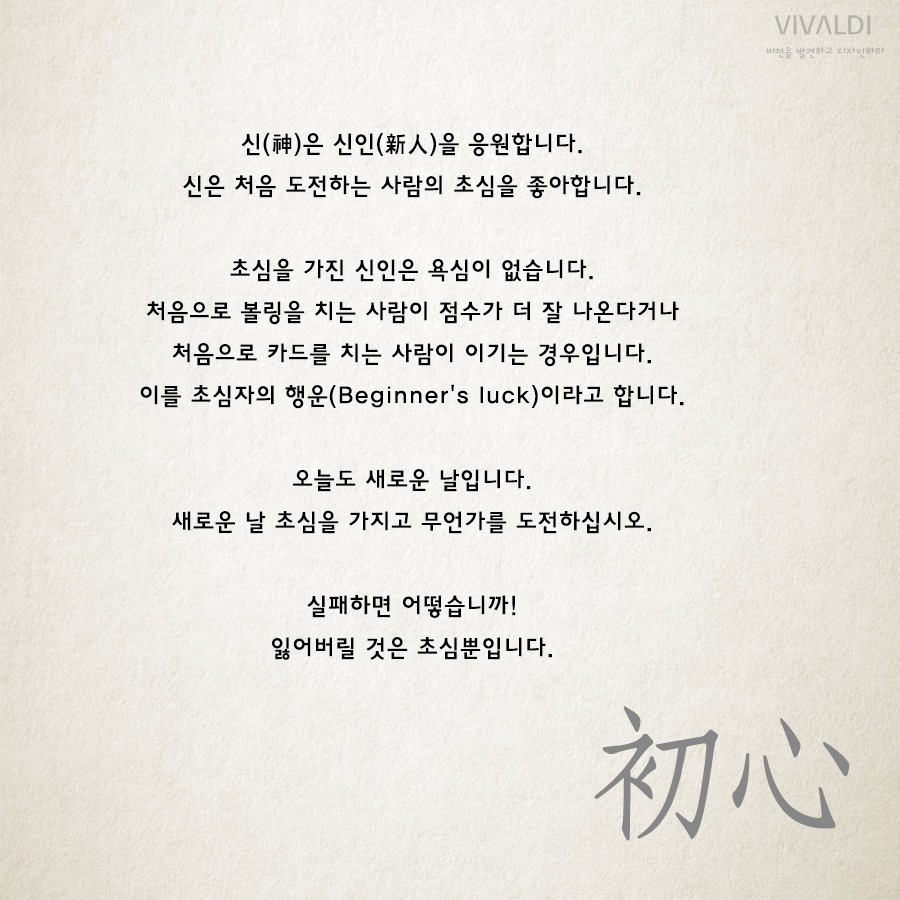 VIVALDI
비전을 발견하고 디자인하라
신(神)은 신인(新人)을 응원합니다.
신은 처음 도전하는 사람의 초심을 좋아합니다.
초심을 가진 신인은 욕심이 없습니다.
처음으로 볼링을 치는 사람이 점수가 더 잘 나온다거나
처음으로 카드를 치는 사람이 이기는 경우입니다.
이를 초심자의 행운(Beginner's luck)이라고 합니다.
오늘도 새로운 날입니다.
새로운 날 초심을 가지고 무언가를 도전하십시오.
실패하면 어떻습니까!
잃어버릴 것은 초심뿐입니다.
初心